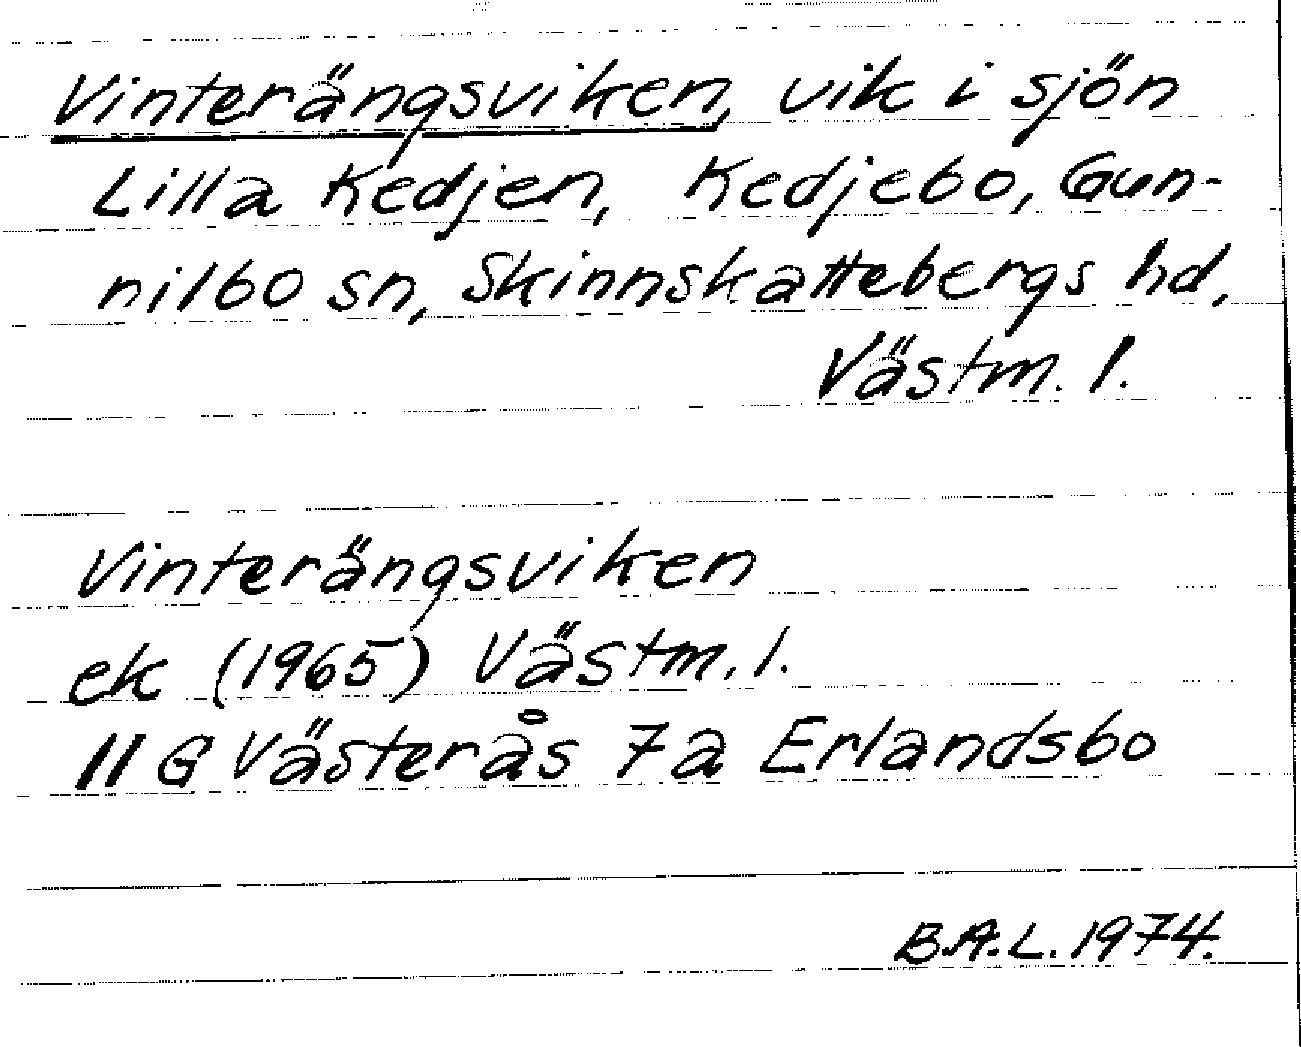 Vinterängsviken, vik i sjön
Lilla Kedjen, Kedjebo, Gun-
nilbo sn, Skinnskattebergs hd,
Västm. l.
Vinterängsviken
ek (1965) Västm. l.
11 G Västerås 7a Erlandsbo
B.A.L. 1974.